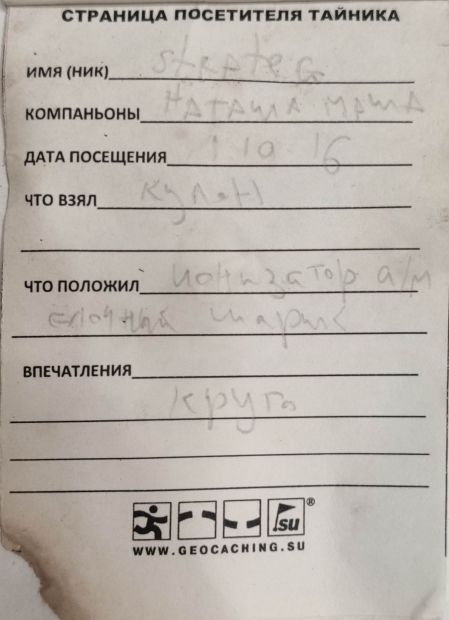 СТРАНИЦА ПОСЕТИТЕЛЯ ТАЙНИКА
ИМЯ (НИК) strateg
КОМПАНЬОНЫ НАТАША МАША
ДАТА ПОСЕЩЕНИЯ 1 10 16
ЧТО ВЗЯЛ кулон
ЧТО ПОЛОЖИЛ ионизатор а/м
елочный шарик
ВПЕЧАТЛЕНИЯ
круто
.su ®
WWW.GEOCACHING.SU